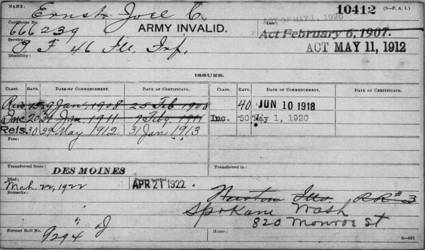 Ernst Joel C.
10412 (S—P. A. I.)
666239 ARMY INVALID.
ACT OF MAY 1, 1920
Act February 6, 1907.
G F 46 Ill Inf.
ACT MAY 11, 1912
ISSUES.
CLASS. RATE DATE OF COMMENCEMENT. DATE OF CERTIFICATE. CLASS. RATE DATE OF COMMENCEMENT. DATE OF CERTIFICATE.
Jan 1908 25 Feb 1908 40 JUN 10 1918
Inc 20 1911 Inc. 50 May 1, 1920
Reis. 30 May 1912 31 Jan 1913
Transferred from
DES MOINES
Mch 22, 1922 APR 21 1922
Newton RR#3
Spokane Wash
820 Monroe St
Former Roll No.
Home: